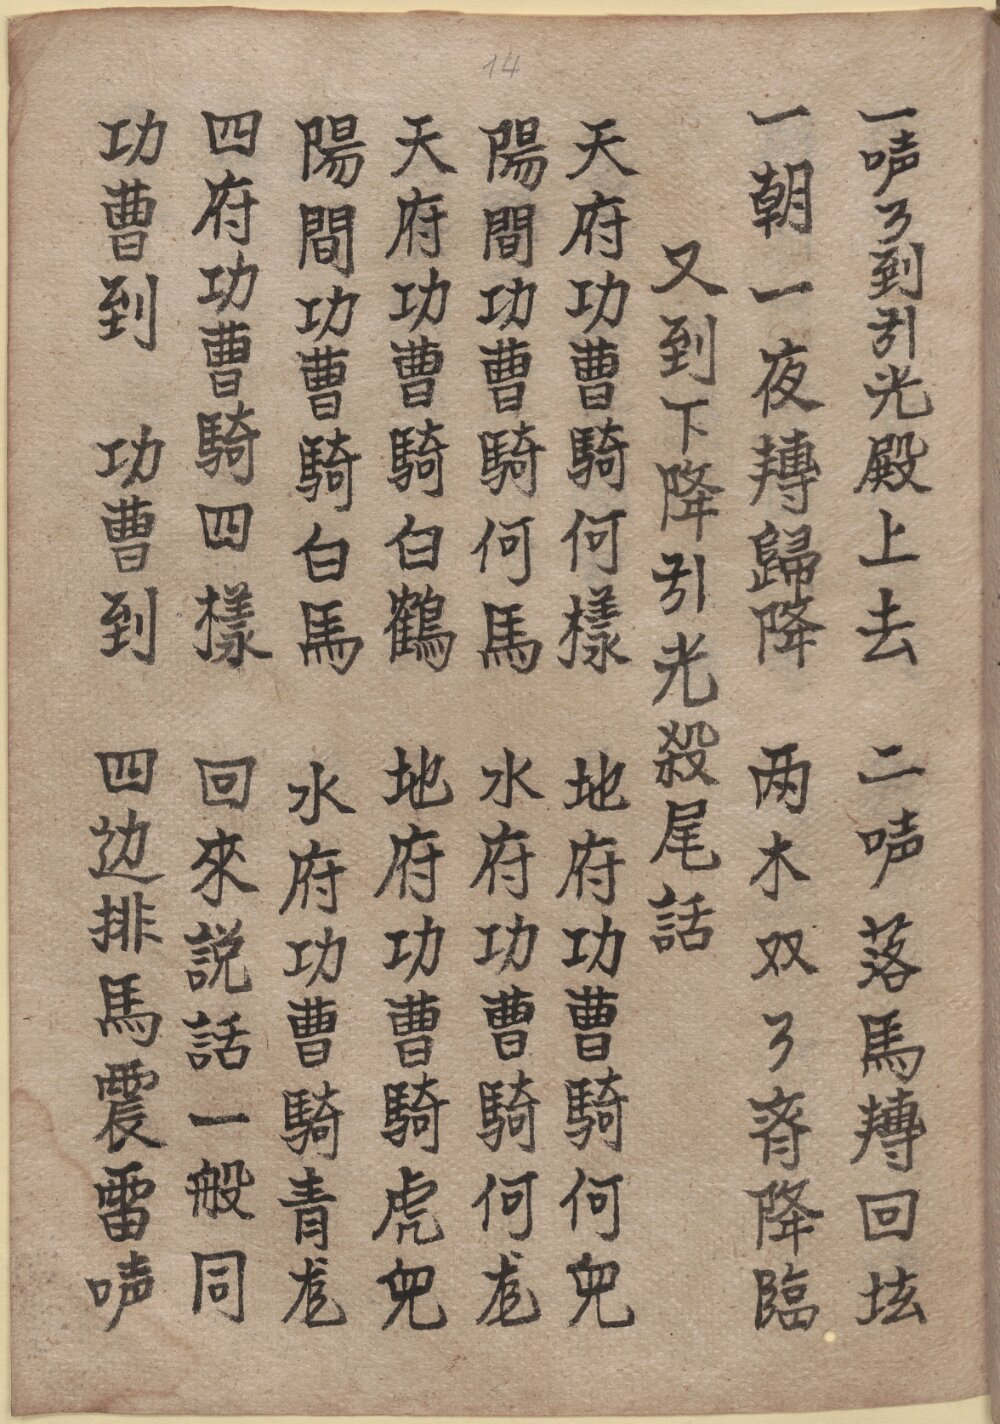 14
一唓了到引光殿上去　二唓落馬轉回坛
一朝一夜轉歸降　两木双了齊降臨
又到下降引光殺尾話
天府功曹騎何樣　地府功曹騎何兜
陽間功曹騎何馬　水府功曹騎何竜
天府功曹騎白鶴　地府功曹騎虎兜
陽間功曹騎白馬　水府功曹騎青竜
四府功曹騎四樣　回來説話一般同
功曹到　功曹到　四边排馬震雷唓